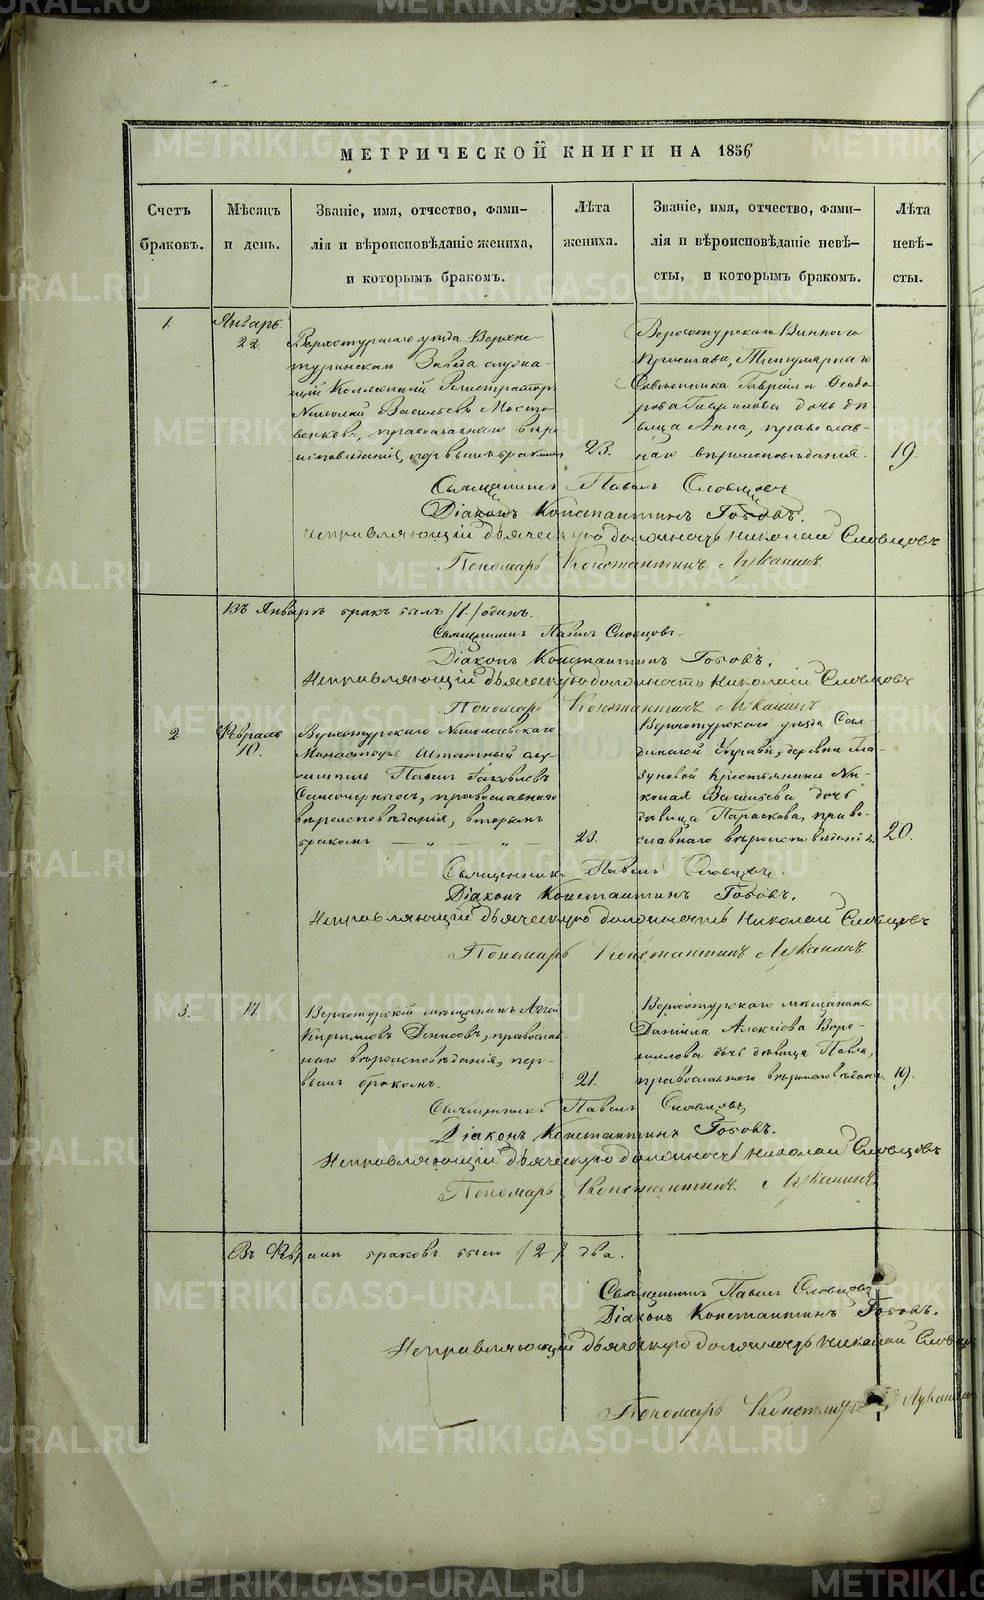 МЕТРИЧЕСКОЙ КНИГИ НА 1856
Счетъ
браковъ.
Мѣсяцъ
и день.
Званіе, имя, отчество, фами-
лія и вѣроисповѣданіе жениха,
и которымъ бракомъ.
Лѣта
жениха.
Званіе, имя, отчество, фами-
лія и вѣроисповѣданіе невѣ-
сты, и которымъ бракомъ.
Лѣта
невѣ-
сты.
1.
Январь
22.
Верхотурскаго уѣзда Верхне
туринскаго Завода служа-
щій Коллежскій Регистраторъ
Николай Васильевъ Мосто-
венковъ, православнаго вѣро
исповѣданія, первымъ бракомъ
23.
Верхотурскаго Виннаго
Пристава, Титулярнаго
Совѣтника Гавріила Ѳеодо
рова Гаврилова дочь дѣ-
вица Анна, православ-
наго вѣроисповѣданія.
19.
Священникъ Павелъ Словцовъ
Діаконъ Константинъ Гобовъ.
Исправляющій дьяческую должность Николай Словцовъ
Пономарь Константинъ Луканинъ.
Въ Январѣ бракъ былъ /1./ одинъ.
Священникъ Павелъ Словцовъ.
Діаконъ Константинъ Гобовъ.
Исправляющій дьяческую должность Николай Словцовъ
Пономарь Константинъ Луканинъ
2
Февраль
10.
Верхотурскаго Николаевскаго
Монастыря Штатный слу-
житель Павелъ Іаковлевъ
православнаго
вѣроисповѣданія, вторымъ
бракомъ — „ — „ —
23.
Верхотурскаго уѣзда Сал-
динской Управы, деревни Гла-
зуновой Крестьянина Ни-
колая Васильева дочь
дѣвица Параскова, право-
славнаго вѣроисповѣданія,
20.
Священникъ Павелъ Словцовъ.
Діаконъ Константинъ Гобовъ.
Исправляющій дьяческую должность Николай Словцовъ
Пономарь Константинъ Луканинъ.
3.
17
Верхотурскій мѣщанинъ
Кириловъ Денисовъ, православ-
наго вѣроисповѣданія, пер-
вымъ бракомъ.
21.
Верхотурскаго мѣщанина
Даніила Алексіева Воро-
шилова дочь дѣвица Павла,
православнаго вѣроисповѣдан.
19.
Священникъ Павелъ Словцовъ
Діаконъ Константинъ Гобовъ.
Исправляющій дьяческую должность Николай Словцовъ
Пономарь Константинъ Луканинъ
Въ Февралѣ браковъ было /2/ два.
Священникъ Павелъ Словцовъ
Діаконъ Константинъ Гобовъ.
Исправляющій дьяческую должность Николай
Пономарь Луканинъ
METRIKI.GASO-URAL.RU